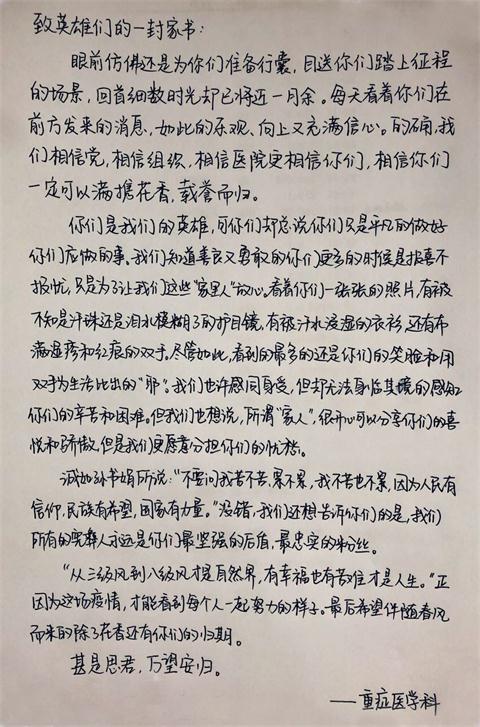 致英雄们的一封家书：
眼前仿佛还是为你们准备行囊，目送你们踏上征程
的场景，回首细数时光却已将近一月余。每天看着你们在
前方发来的消息，如此的乐观、向上又充满信心。的确，我
们相信党，相信组织，相信医院更相信你们，相信你们
一定可以满携花香，载誉而归。
你们是我们的英雄，可你们却总说你们只是平凡的做好
你们应做的事。我们知道善良又勇敢的你们更多的时候是报喜不
报忧，只是为了让我们这些“家里人”放心。看着你们一张张的照片，有被
不知是汗珠还是泪水模糊了的护目镜，有被汗水浸湿的衣衫，还有布
满湿疹和红痕的双手。尽管如此，看到的最多的还是你们的笑脸和用
双手为生活比出的“耶”。我们也许感同身受，但却无法身临其境的感知
你们的辛苦和困难。但我们也想说，所谓“家人”，很开心可以分享你们的喜
悦和骄傲，但是我们更愿意分担你们的忧愁。
诚如孙书娟所说：“不要问我苦不苦、累不累，我不苦也不累，因为人民有
信仰，民族有希望，国家有力量。”没错，我们还想告诉你们的是，我们
所有的家人永远是你们最坚强的后盾，最忠实的粉丝。
“从三级风到八级风才是自然界，有幸福也有苦难才是人生。”正
因为这场疫情，才能看到每个人一起努力的样子。最后希望伴随春风
而来的除了花香还有你们的归期。
甚是思君，万望安归。
——重症医学科